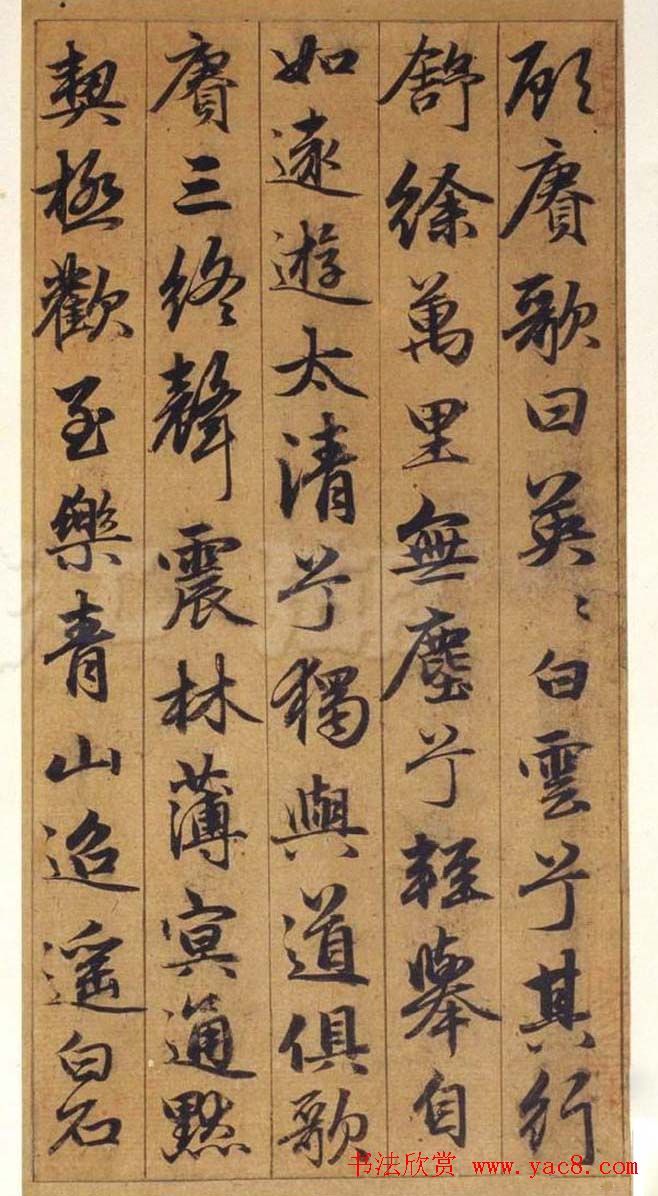 頋賡歌曰英〻白雲兮其行
舒徐萬里無塵兮輕舉自
如遠遊太清兮獨與道俱歌
賡三終聲震林薄冥通默
契極歡至樂青山迢遥白石
书法欣赏 www.yac8.com